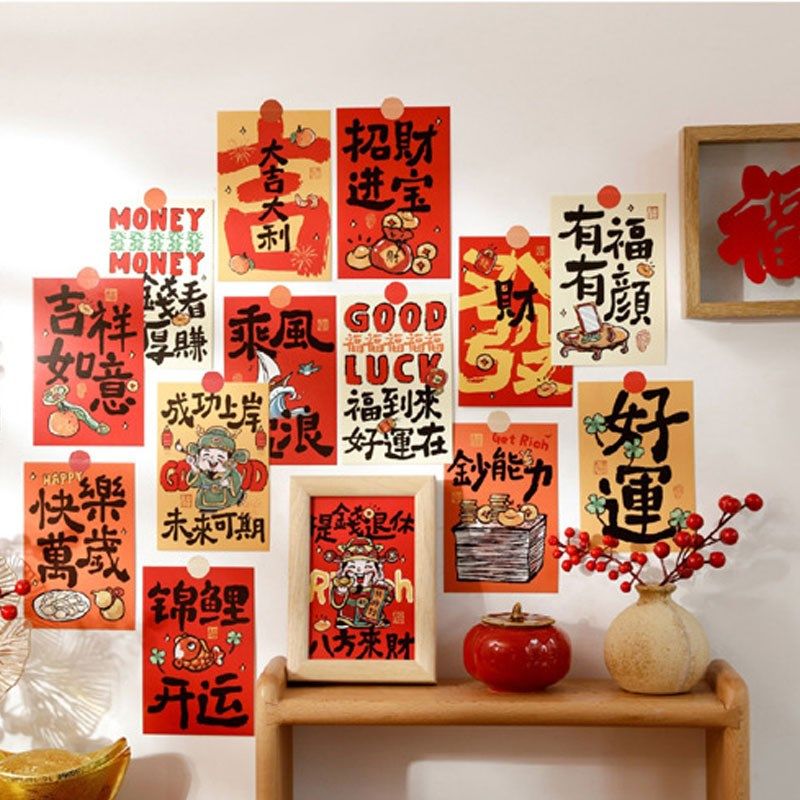 大
吉
大
利
招財
进宝
MONEY
MONEY
錢看
厚賺
有福
有顏
福
吉祥
如意
乘風
浪
GOOD
福福福福福
LUCK
福到來
好運在
發
財
成功上岸
GOOD
未來可期
Get Rich
鈔能力
好
運
HAPPY
快樂
萬歲
提錢退休
Rich
八方來財
锦鲤
开运